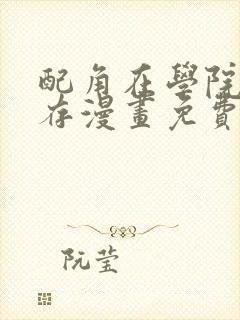 配角在學院
存漫畫免費
阮莹